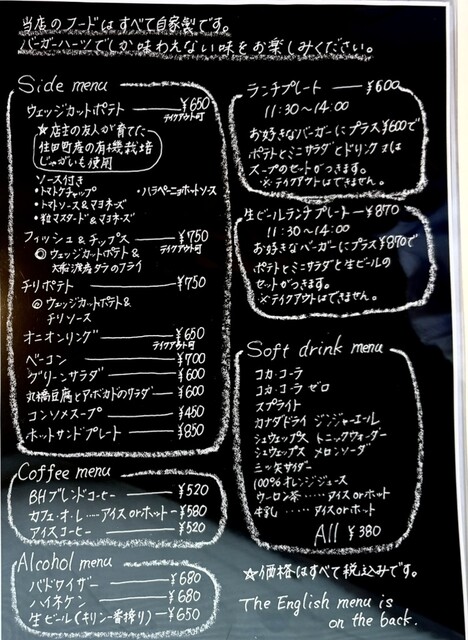 当店のフードはすべて自家製です。
バーガーハーツでしか味わえない味をお楽しみください。
Side menu
ウェッジカットポテト ¥650
テイクアウト可
☆店主の友人が育てた
住田町産の有機栽培
じゃがいも使用
ソース付き
・トマトケチャップ ・ハラペーニョホットソース
・トマトソース&マヨネーズ
・粒マスタード&マヨネーズ
フィッシュ&チップス ¥750
テイクアウト可
◎ウェッジカットポテト&
大船渡産タラのフライ
チリポテト ¥750
◎ウェッジカットポテト&
チリソース
オニオンリング ¥650
テイクアウト可
ベーコン ¥700
グリーンサラダ ¥600
丸橋豆腐とアボカドのサラダ ¥600
コンソメスープ ¥450
ホットサンドプレート ¥850
Coffee menu
BHブレンドコーヒー ¥520
カフェ・オ・レ……アイス or ホット ¥580
アイスコーヒー ¥520
Alcohol menu
バドワイザー ¥680
ハイネケン ¥680
生ビール(キリン一番搾り) ¥650
ランチプレート ¥600
11:30~14:00
お好きなバーガーにプラス¥600で
ポテトとミニサラダとドリンク又は
スープのセットがつきます。
※テイクアウトはできません。
生ビールランチプレート ¥870
11:30~14:00
お好きなバーガーにプラス¥870で
ポテトとミニサラダと生ビールの
セットがつきます。
※テイクアウトはできません。
Soft drink menu
コカ・コーラ
コカ・コーラ ゼロ
スプライト
カナダドライ ジンジャーエール
シュウェップス トニックウォーター
シュウェップス メロンソーダ
三ツ矢サイダー
100%オレンジジュース
ウーロン茶……アイス or ホット
牛乳……アイス or ホット
All ¥380
☆価格はすべて税込みです。
The English menu is
on the back.